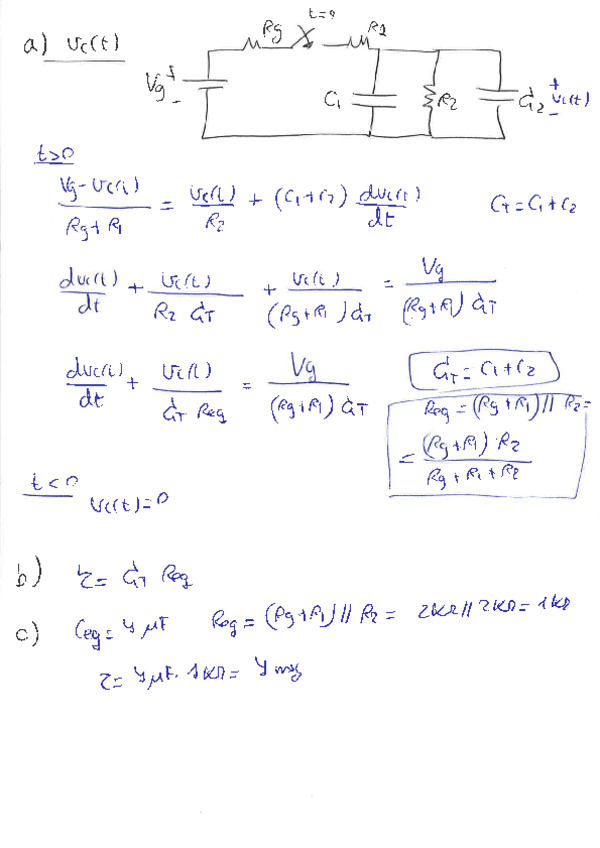 a) Vc(t)
t=0
Rg R1
Vg + -
C1 R2 C2 + vc(t) -
t>0
(Vg - vc(t)) / (Rg + R1) = vc(t) / R2 + (C1+C2) dvc(t)/dt CT = C1+C2
dvc(t)/dt + vc(t) / (R2 CT) + vc(t) / ((Rg+R1) CT) = Vg / ((Rg+R1) CT)
dvc(t)/dt + vc(t) / (CT Req) = Vg / ((Rg+R1) CT) CT = C1+C2
Req = (Rg+R1) // R2 =
= (Rg+R1) · R2 / (Rg + R1 + R2)
t<0
vc(t)=0
b) τ = CT Req
c) Ceq = 4 μF Req = (Rg+R1) // R2 = 2KΩ // 2KΩ = 1KΩ
τ = 4 μF · 1KΩ = 4 msg